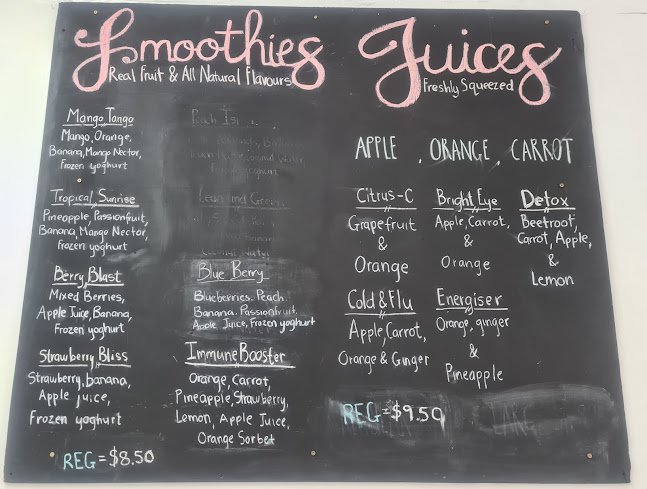 Smoothies
Real Fruit & All Natural Flavours
Mango Tango
Mango, Orange,
Banana, Mango Nector,
Frozen yoghurt
Tropical Sunrise
Pineapple, Passionfruit,
Banana, Mango Nector,
Frozen yoghurt
Berry Blast
Mixed Berries,
Apple Juice, Banana,
Frozen yoghurt
Strawberry Bliss
Strawberry, banana,
Apple juice,
Frozen yoghurt
REG = $8.50
Peach
yoghurt
Lean and Green
Blue Berry
Blueberries, Peach,
Banana, Passionfruit,
Apple Juice, Frozen yoghurt
Immune Booster
Orange, Carrot,
Pineapple, Strawberry,
Lemon, Apple Juice,
Orange Sorbet
Juices
Freshly Squeezed
APPLE, ORANGE, CARROT
Citrus-C
Grapefruit
&
Orange
Cold & Flu
Apple, Carrot,
Orange & Ginger
Bright Eye
Apple, Carrot,
&
Orange
Energiser
Orange, ginger
&
Pineapple
Detox
Beetroot,
Carrot, Apple,
&
Lemon
REG = $9.50